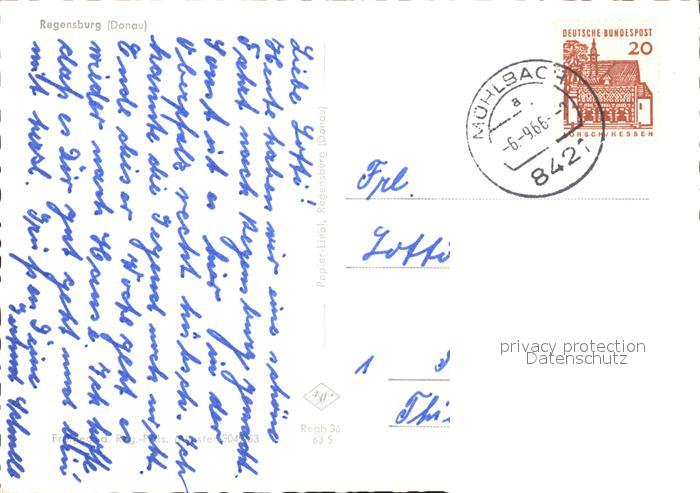 Regensburg (Donau)
Liebe Lotti!
Heute haben wir eine schöne
Fahrt nach Regensburg gemacht.
Sonst ist es hier in der
Oberpfalz recht hübsch. Ich
kannte die Gegend noch nicht.
Ende dieser Woche geht es
wieder nach Hause. Ich hoffe
daß es Dir gut geht und Du
mit
Grüßen Deine
Papier-Liebl, Regensburg (Donau)
Regb 36
63 S
DEUTSCHE BUNDESPOST
20
LORSCH/HESSEN
MÜHLBACH
a
-6.-9.66.-
8421
Frl.
Lotti
1
Thi
privacy protection
Datenschutz